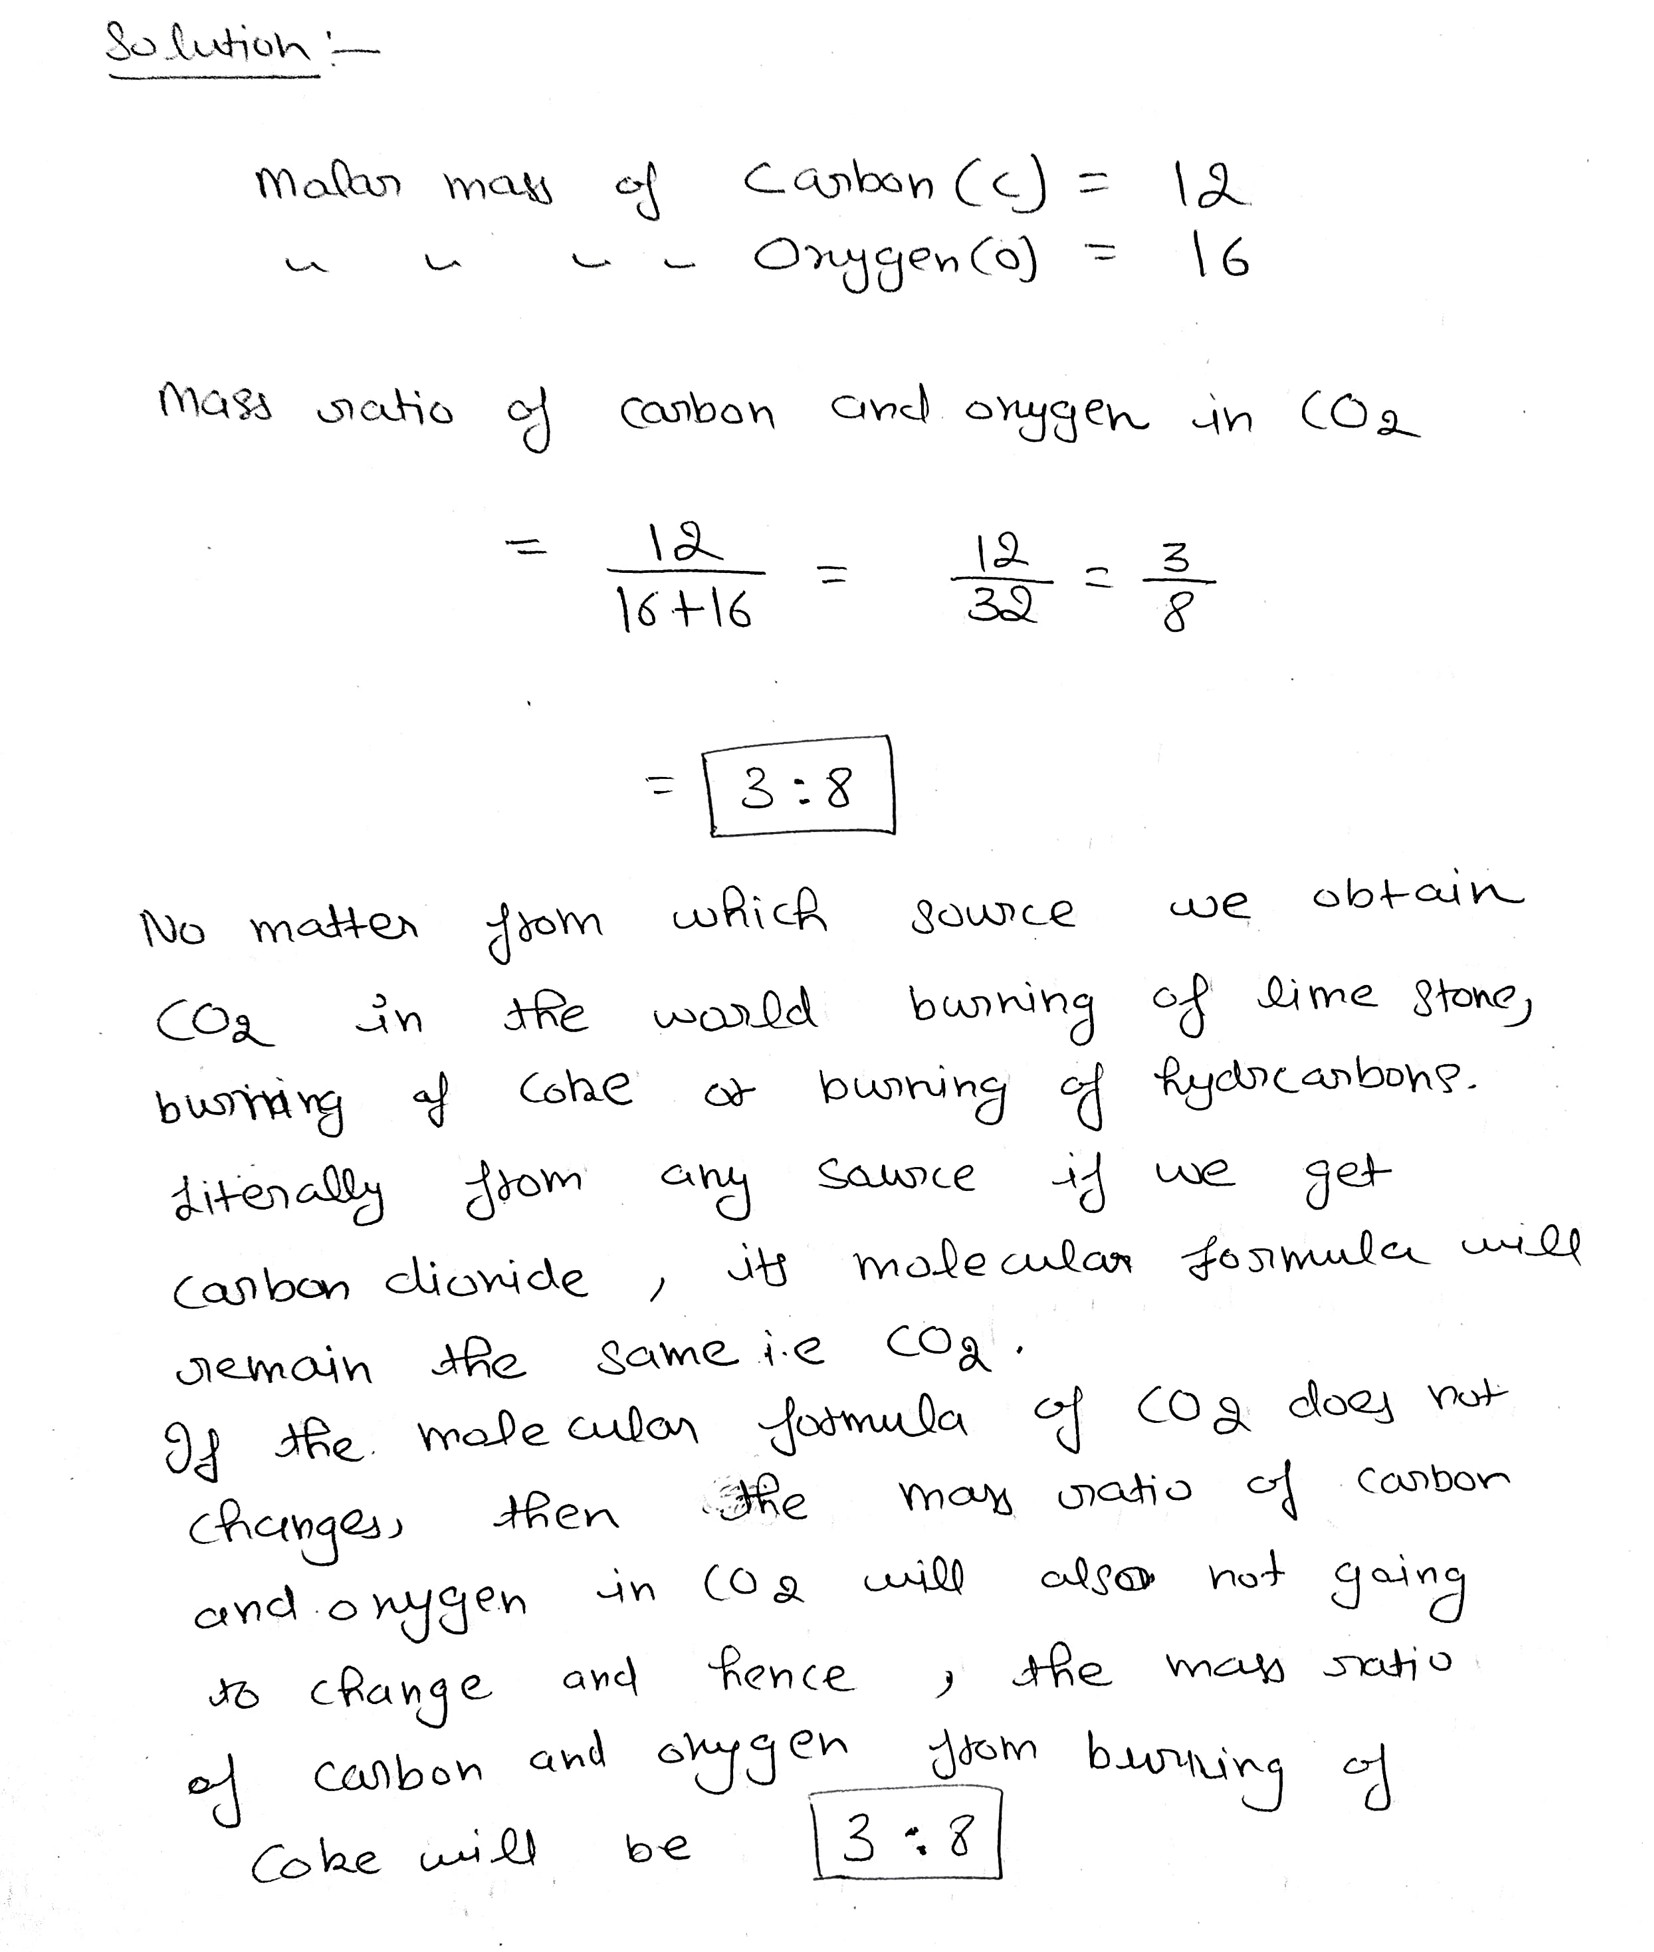 Solution :-
Molar mass of Carbon (C) = 12
" " " " Oxygen (O) = 16
Mass ratio of carbon and oxygen in CO2
= 12/16+16 = 12/32 = 3/8
= 3 : 8
No matter from which source we obtain
CO2 in the world burning of lime stone,
burning of Coke or burning of hydrocarbons.
Literally from any source if we get
carbon dioxide , its molecular formula will
remain the same i.e CO2 .
If the molecular formula of CO2 does not
changes, then the mass ratio of carbon
and oxygen in CO2 will also not going
to change and hence , the mass ratio
of carbon and oxygen from burning of
Coke will be 3 : 8